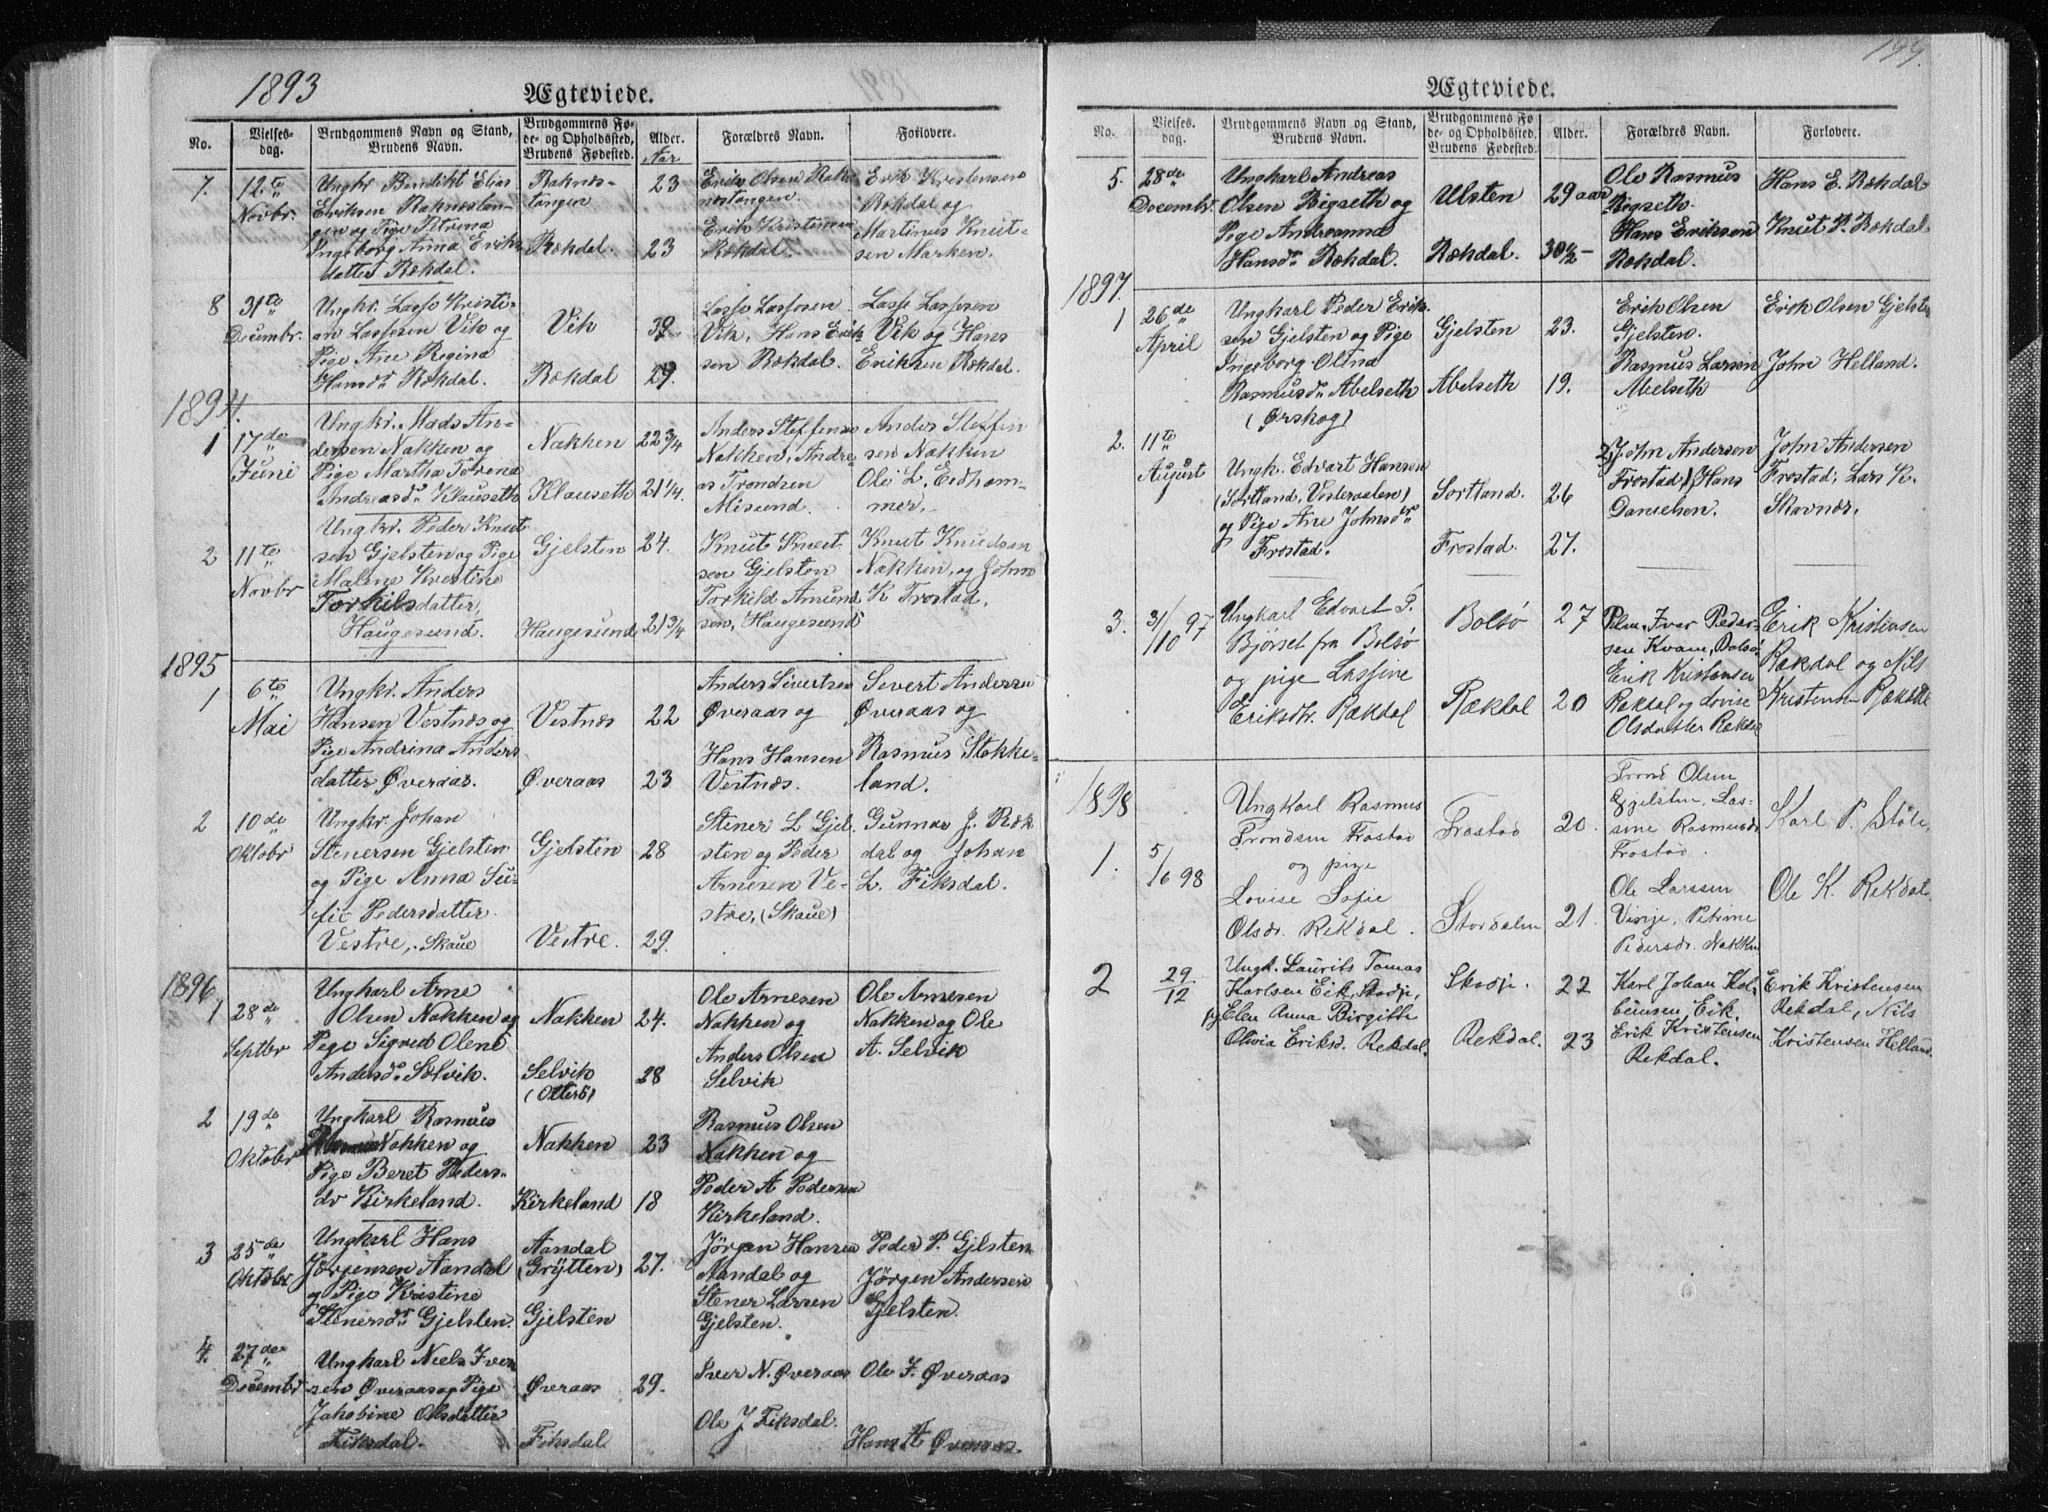 1893
Ægteviede.
No.
Vielses-
dag.
Brudgommens Navn og Stand,
Brudens Navn.
Brudgommens Fø-
de- og Opholdssted,
Brudens Fødested.
Alder.
Aar
Forældres Navn.
Forlovere.
7.
12te
Novbr.
Ungkr Bendikt Elias
Eriksen Raknestan-
gen og Pige Petrina
Ingeborg Anna Eriks
datter Rækdal.
Raknes-
tangen
Rækdal.
23
23
Erik Olsen Rak-
nestangen.
Erik Kristensen
Rækdal.
Erik Kristensen
Rækdal og
Martinus Knut-
sen Marken.
8
31te
Decembr.
Ungkr. Lasse Kristi-
an Lassesen Vik og
Pige Ane Regina
Hansdr Rækdal.
Vik
Rækdal
39
29.
Lasse Lassesen
Vik, Hans Erik
sen Rækdal.
Lasse Lassesen
Vik og Hans
Eriksen Rækdal.
1894.
1
17de
Juni
Ungkr. Mads An-
dersen Nakken og
Pige Martha Petrena
Andreasdr Klauseth
Nakken
Klauseth
22 3/4
21 1/4.
Anders Steffensen
Nakken, Andre-
as Trondsen
Misund.
Anders Steffen
sen Nakken
Ole L. Eidham-
mer.
2
11te
Novbr
Ungkr. Peder Knut
sen Gjelsten og Pige
Malene Kristine
Torkilsdatter,
Haugesund.
Gjelsten
Haugesund
24.
21 3/4
Knut Knut
sen Gjelsten
Torkild Amund
sen, Haugesund
Knut Knudsen
Nakken, og John
K Frostad.
1895
1
6te
Mai
Ungkr. Anders
Hansen Vestnæs og
Pige Andrina Anders
datter Øveraas.
Vestnæs
Øveraas
22
23
Anders Sivertsen
Øveraas og
Hans Hansen
Vestnæs.
Severt Andersen
Øveraas og
Rasmus Stokke-
land.
2
10de
Oktobr
Ungkr. Johan
Stenersen Gjelsten
og Pige Anna Su-
fie Pedersdatter
Vestre, Skaue
Gjelsten
Vestre.
28
29.
Stener L Gjel
sten og Peder
Arnesen Ve-
stre, (Skaue)
Gunnar J. Ræk
dal og Johan
L. Fiksdal.
1896
1
28de
Septbr
Ungkarl Arne
Olsen Nakken og
Pige Sigved Olene
Andersdr Sølvik.
Nakken
Selvik
(Otterö)
24.
28
Ole Arnesen
Nakken og
Anders Olsen
Selvik
Ole Arnesen
Nakken og Ole
A. Selvik
2
19de
Oktobr
Ungkarl Rasmus
Nakken og
Pige Beret Peders-
dr Kirkeland.
Nakken
Kirkeland
23
18
Rasmus Olsen
Nakken og
Peder A Pedersen
Kirkeland.
3
25de
Oktobr
Ungkarl Hans
Jörgensen Aandal
og Pige Kristine
Stenersdr Gjelsten.
Aandal
(Grytten)
Gjelsten
27.
Jörgen Hansen
Aandal og
Stener Larsen
Gjelsten.
Peder P. Gjelsten
Jörgen Andersen
Gjelsten.
4.
27de
Decembr
Ungkarl Niels Iver
sen Øveraas og Pige
Jakobine Olsdatter
Fiksdal.
Øveraas
Fiksdal
29.
Iver N. Øveraas
Ole J Fiksdal.
Ole I. Øveraas
Hans A Øveraas.
199.
Ægteviede.
No.
Vielses-
dag.
Brudgommens Navn og Stand,
Brudens Navn.
Brudgommens Fø
de- og Opholdssted,
Brudens Fødested.
Alder.
Forældres Navn.
Forlovere.
5.
28de
Decembr.
Ungkarl Andreas
Olsen Bigseth og
Pige Andreanna
Hansdr Rækdal.
Ulsten
Rækdal.
29 aar
30 1/2 -
Ole Rasmus
Bigseth.
Hans Eriksen
Rækdal.
Hans E. Rækdal
Knut P. Rækdal
1897.
1
26de
April
Ungkarl Peder Erik-
sen Gjelsten og Pige
Ingeborg Olina
Rasmusdr Abelseth
(Ørskog)
Gjelsten
Abelseth
23.
19.
Erik Olsen
Gjelsten.
Rasmus Larsen
Abelseth
Erik Olsen Gjelsten
John Helland.
2.
11te
August
Ungk. Edvart Hansen
(Sortland, Vesteraalen)
og Pige Ane Johnsdr
Frostad.
Sortland.
Frostad.
26
27.
John Andersen
Frostad, Hans
Danielsen.
John Andersen
Frostad, Lars K.
Skavnæs.
3.
31/10 97
Ungkarl Edvart P.
Bjørset fra Bolsø
og pige Lassine
Eriksdtr. Rækdal
Bolsø
Rækdal
27
20
Iver Peder-
sen Kvam, Bolsø
Erik Kristensen
Rækdal og Lovise
Olsdatter Rækdal
Erik Kristensen
Rækdal og Nils
Kristensen Rækdal
1898
1.
5/6 98
Ungkarl Rasmus
Trondsen Frostad
og pige
Lovise Sofie
Olsdr. Rekdal.
Frostad
Stordalen
20.
21.
Trond Olsen
Gjelsten, Las-
sine Rasmusdr
Frostad.
Ole Larssen
Visnje, Petrine
Pedersdr. Nakken
Karl P. Støle,
Ole K. Rekdal
2
29/12
Ungk. Laurits Tomas
Karlsen Eik, Skodje,
pg Elen Anna Birgitte
Olivia Eriksd. Rekdal.
Skodje.
Rekdal.
22
23
Karl Johan Kol-
beinsen, Eik.
Erik Kristensen
Rekdal.
Erik Kristensen
Rekdal, Nils
Kristensen Helland.